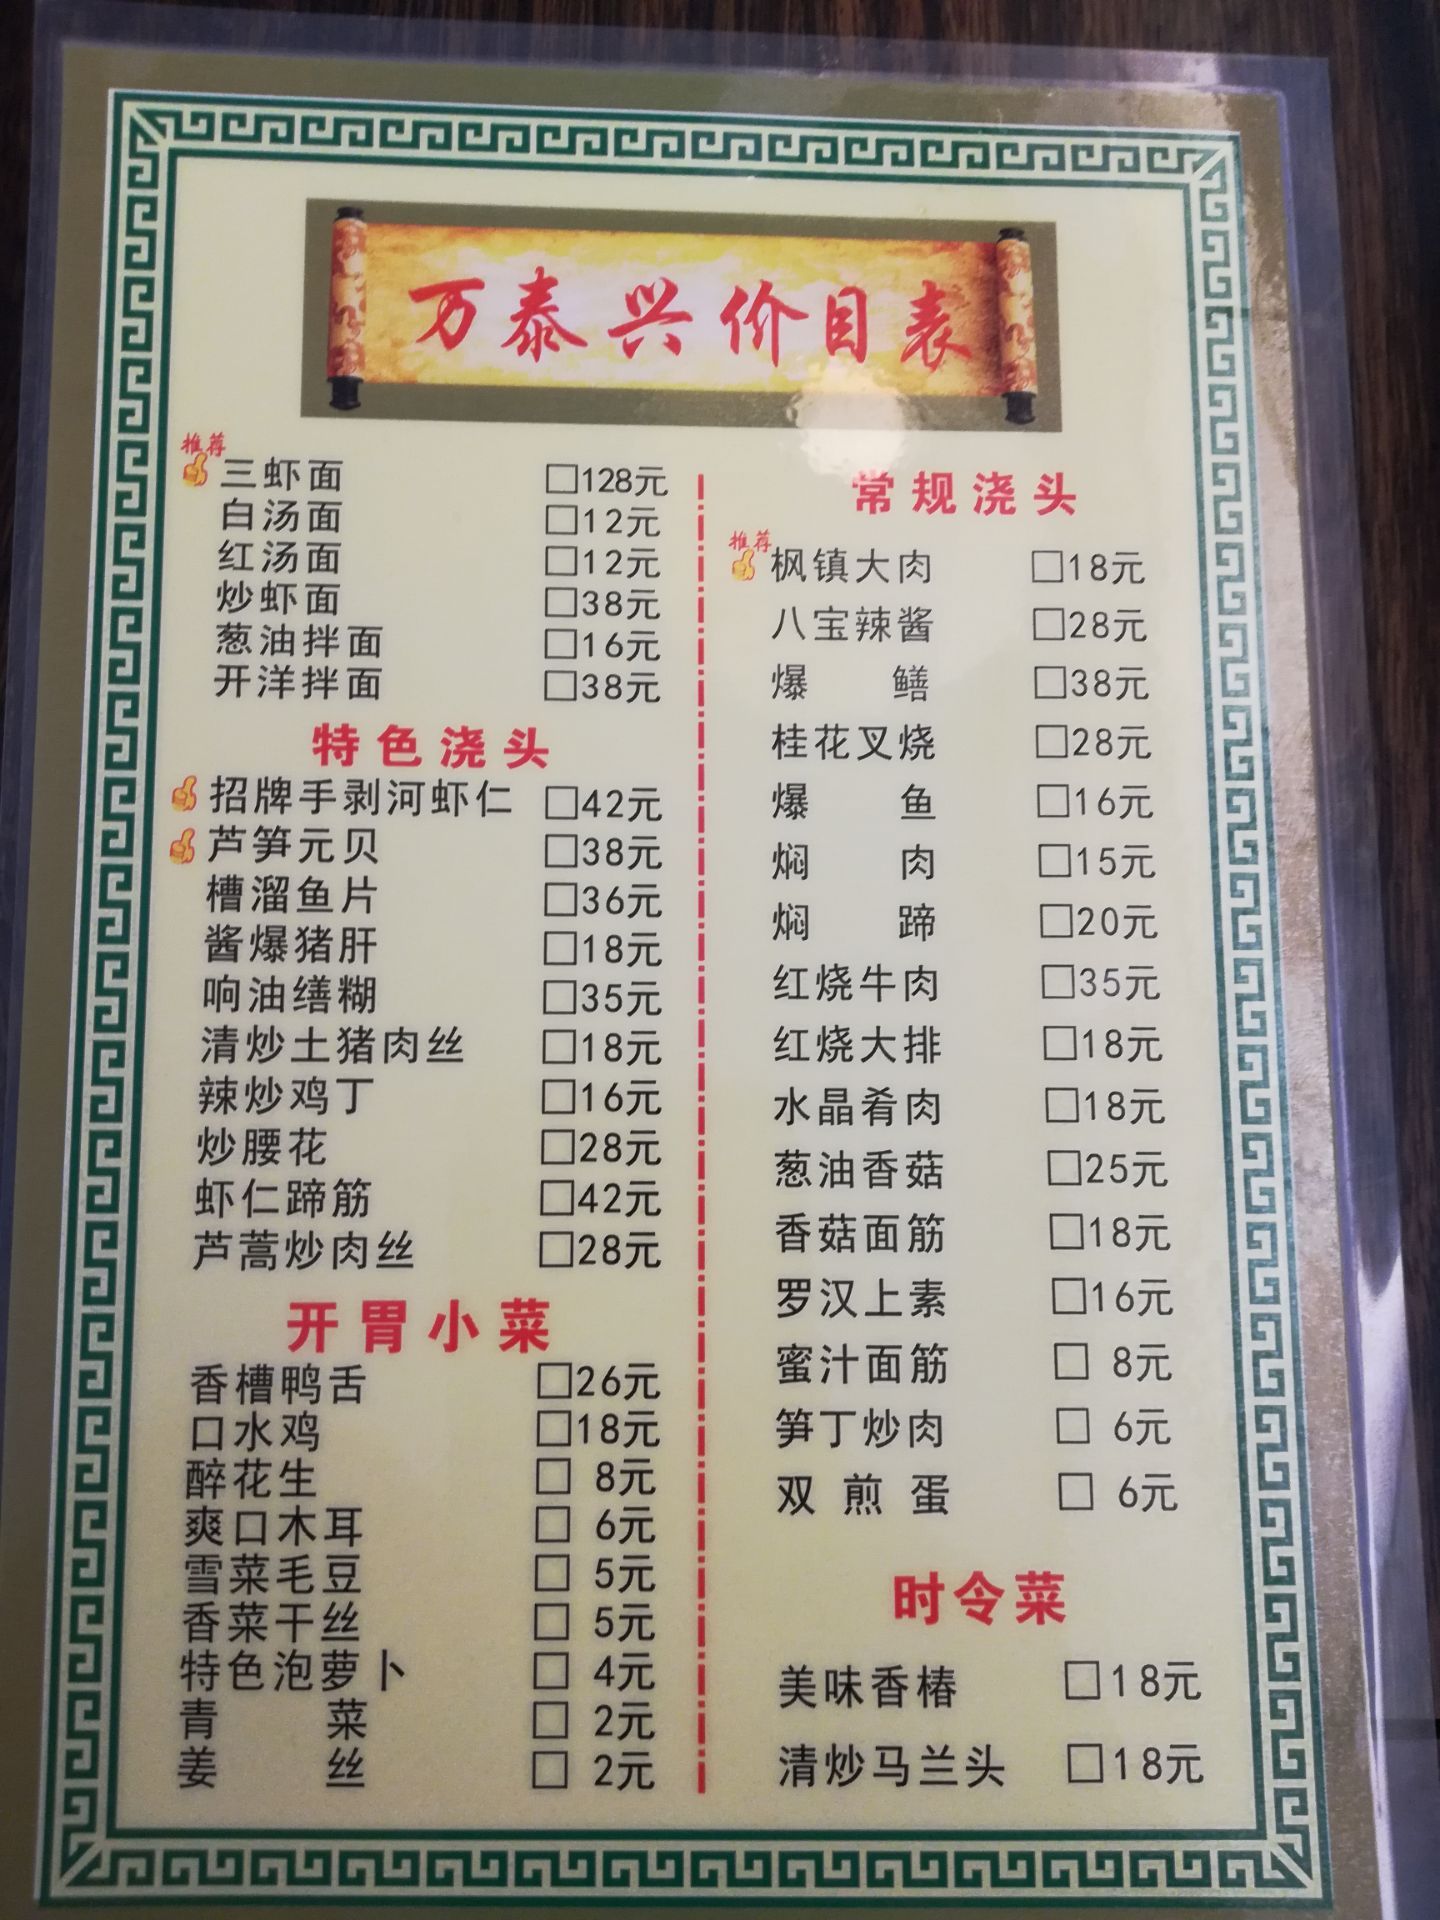 万泰兴价目表
推荐
三虾面 □128元
白汤面 □12元
红汤面 □12元
炒虾面 □38元
葱油拌面 □16元
开洋拌面 □38元
特色浇头
招牌手剥河虾仁 □42元
芦笋元贝 □38元
槽溜鱼片 □36元
酱爆猪肝 □18元
响油缮糊 □35元
清炒土猪肉丝 □18元
辣炒鸡丁 □16元
炒腰花 □28元
虾仁蹄筋 □42元
芦蒿炒肉丝 □28元
开胃小菜
香槽鸭舌 □26元
口水鸡 □18元
醉花生 □ 8元
爽口木耳 □ 6元
雪菜毛豆 □ 5元
香菜干丝 □ 5元
特色泡萝卜 □ 4元
青菜 □ 2元
姜丝 □ 2元
常规浇头
推荐
枫镇大肉 □18元
八宝辣酱 □28元
爆鳝 □38元
桂花叉烧 □28元
爆鱼 □16元
焖肉 □15元
焖蹄 □20元
红烧牛肉 □35元
红烧大排 □18元
水晶肴肉 □18元
葱油香菇 □25元
香菇面筋 □18元
罗汉上素 □16元
蜜汁面筋 □ 8元
笋丁炒肉 □ 6元
双煎蛋 □ 6元
时令菜
美味香椿 □18元
清炒马兰头 □18元